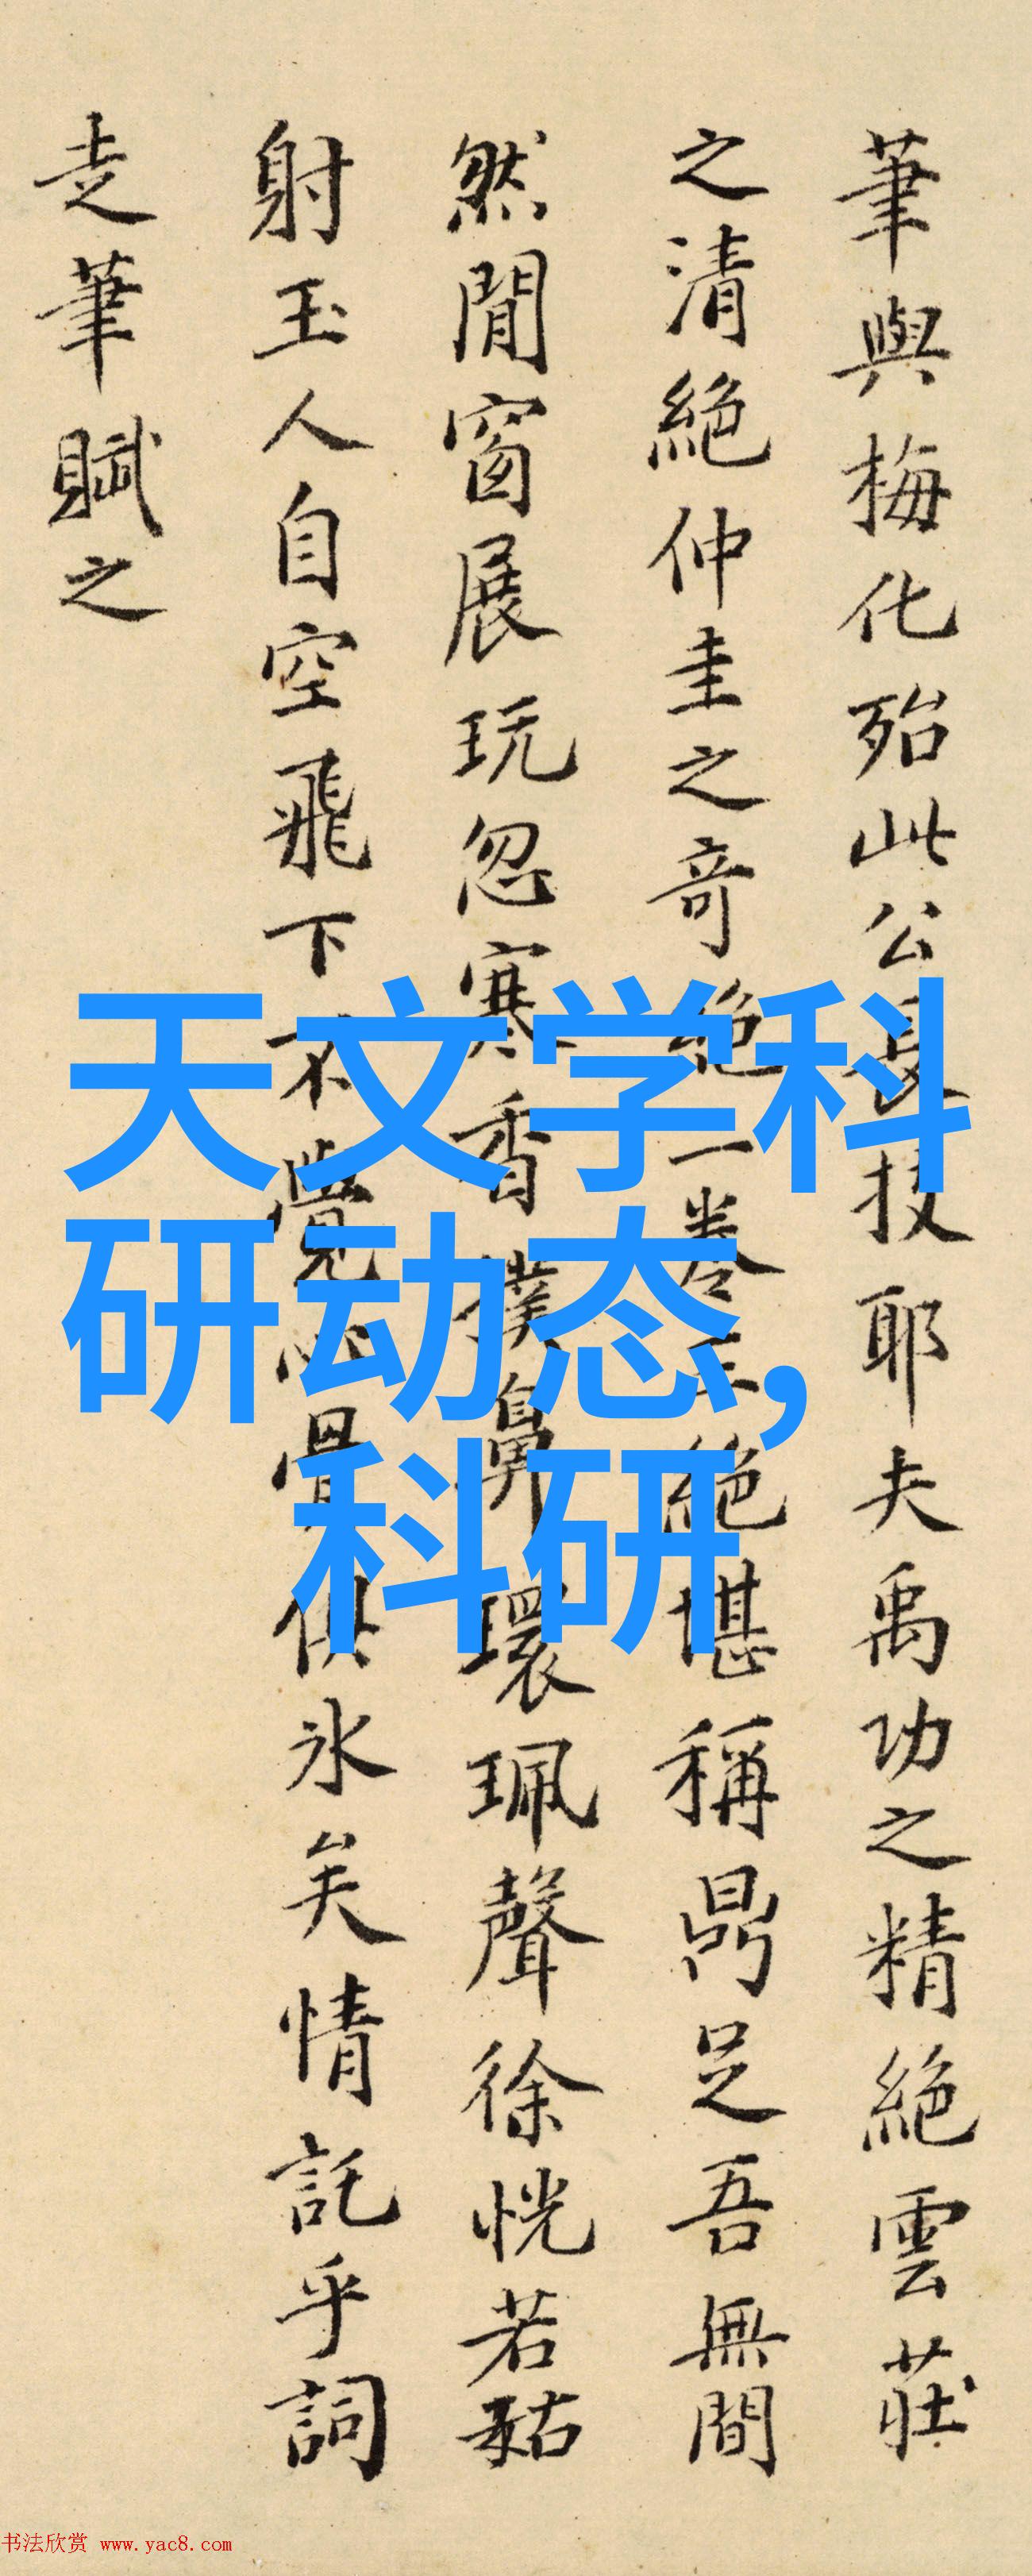 筆與梅化殆此公長技耶夫禹功之精絕雲莊
之清絕仲圭之奇絕一卷三絕堪稱鼎足吾無間
然閒窗展玩忽寒香撲鼻環珮聲徐恍若姑
射玉人自空飛下不覺心骨俱冰矣情託乎詞
走筆賦之
天文学科
研动态,
科研
书法欣赏 www.yac8.com